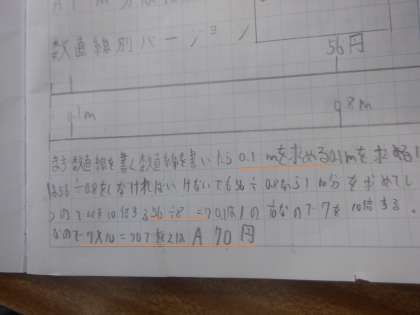 数直線別バージョン
56円
0.1m 0.8m
まず数直線を書く数直線を書いたら0.1mを求める0.1mを求める
は56÷0.8をしなければいけないでも56÷0.8なら1m分を求めてし
うので
56÷8=7 0.1は1の なので7を10倍する
なので7×10=70で答えは A 70円